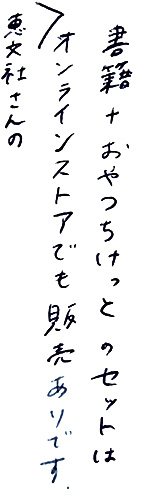 書籍+おやつちけっとのセットは
オンラインストアでも販売ありです.
恵文社さんの